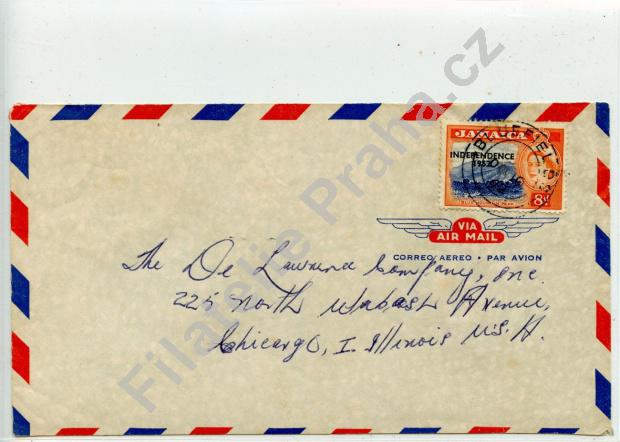 Filatelie Praha.cz
BLUEFIEL
JAMAICA
INDEPENDENCE
1962
8d
VIA
AIR MAIL
CORREO AEREO • PAR AVION
The De Lawrence Company, Inc.
225 North Wabash Avenue,
Chicargo, I. Illinois U.S.A.